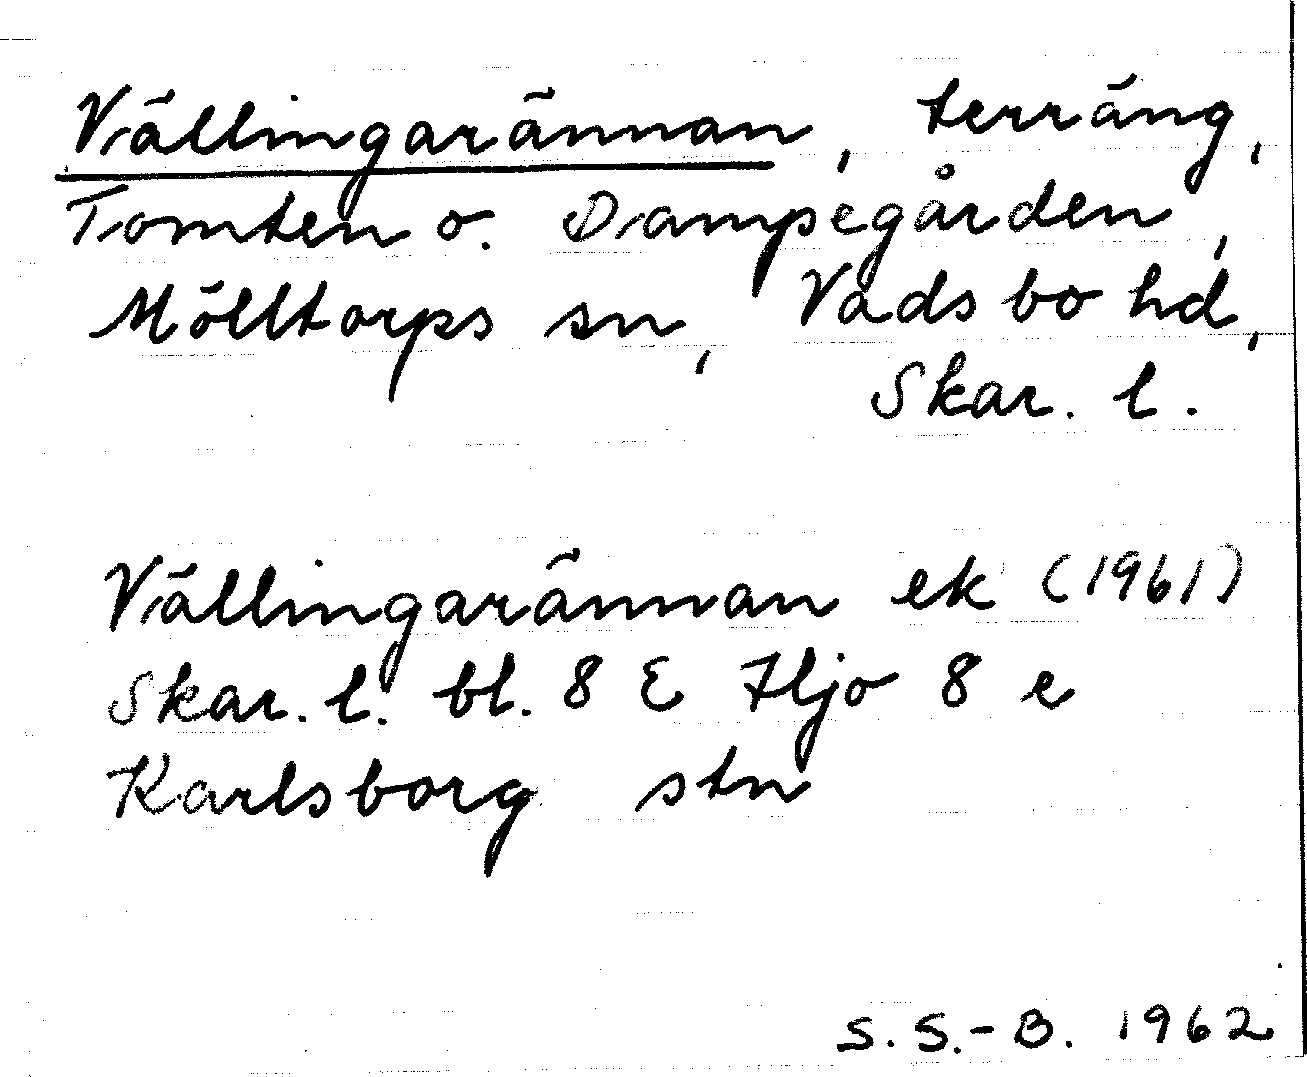 Vällingarännan, terräng,
Tomten o. Dampegården,
Mölltorps sn, Vadsbo hd,
Skar. l.
Vällingarännan ek (1961)
Skar. l. bl. 8 E Hjo 8 e
Karlsborg stn
S. S.-B. 1962